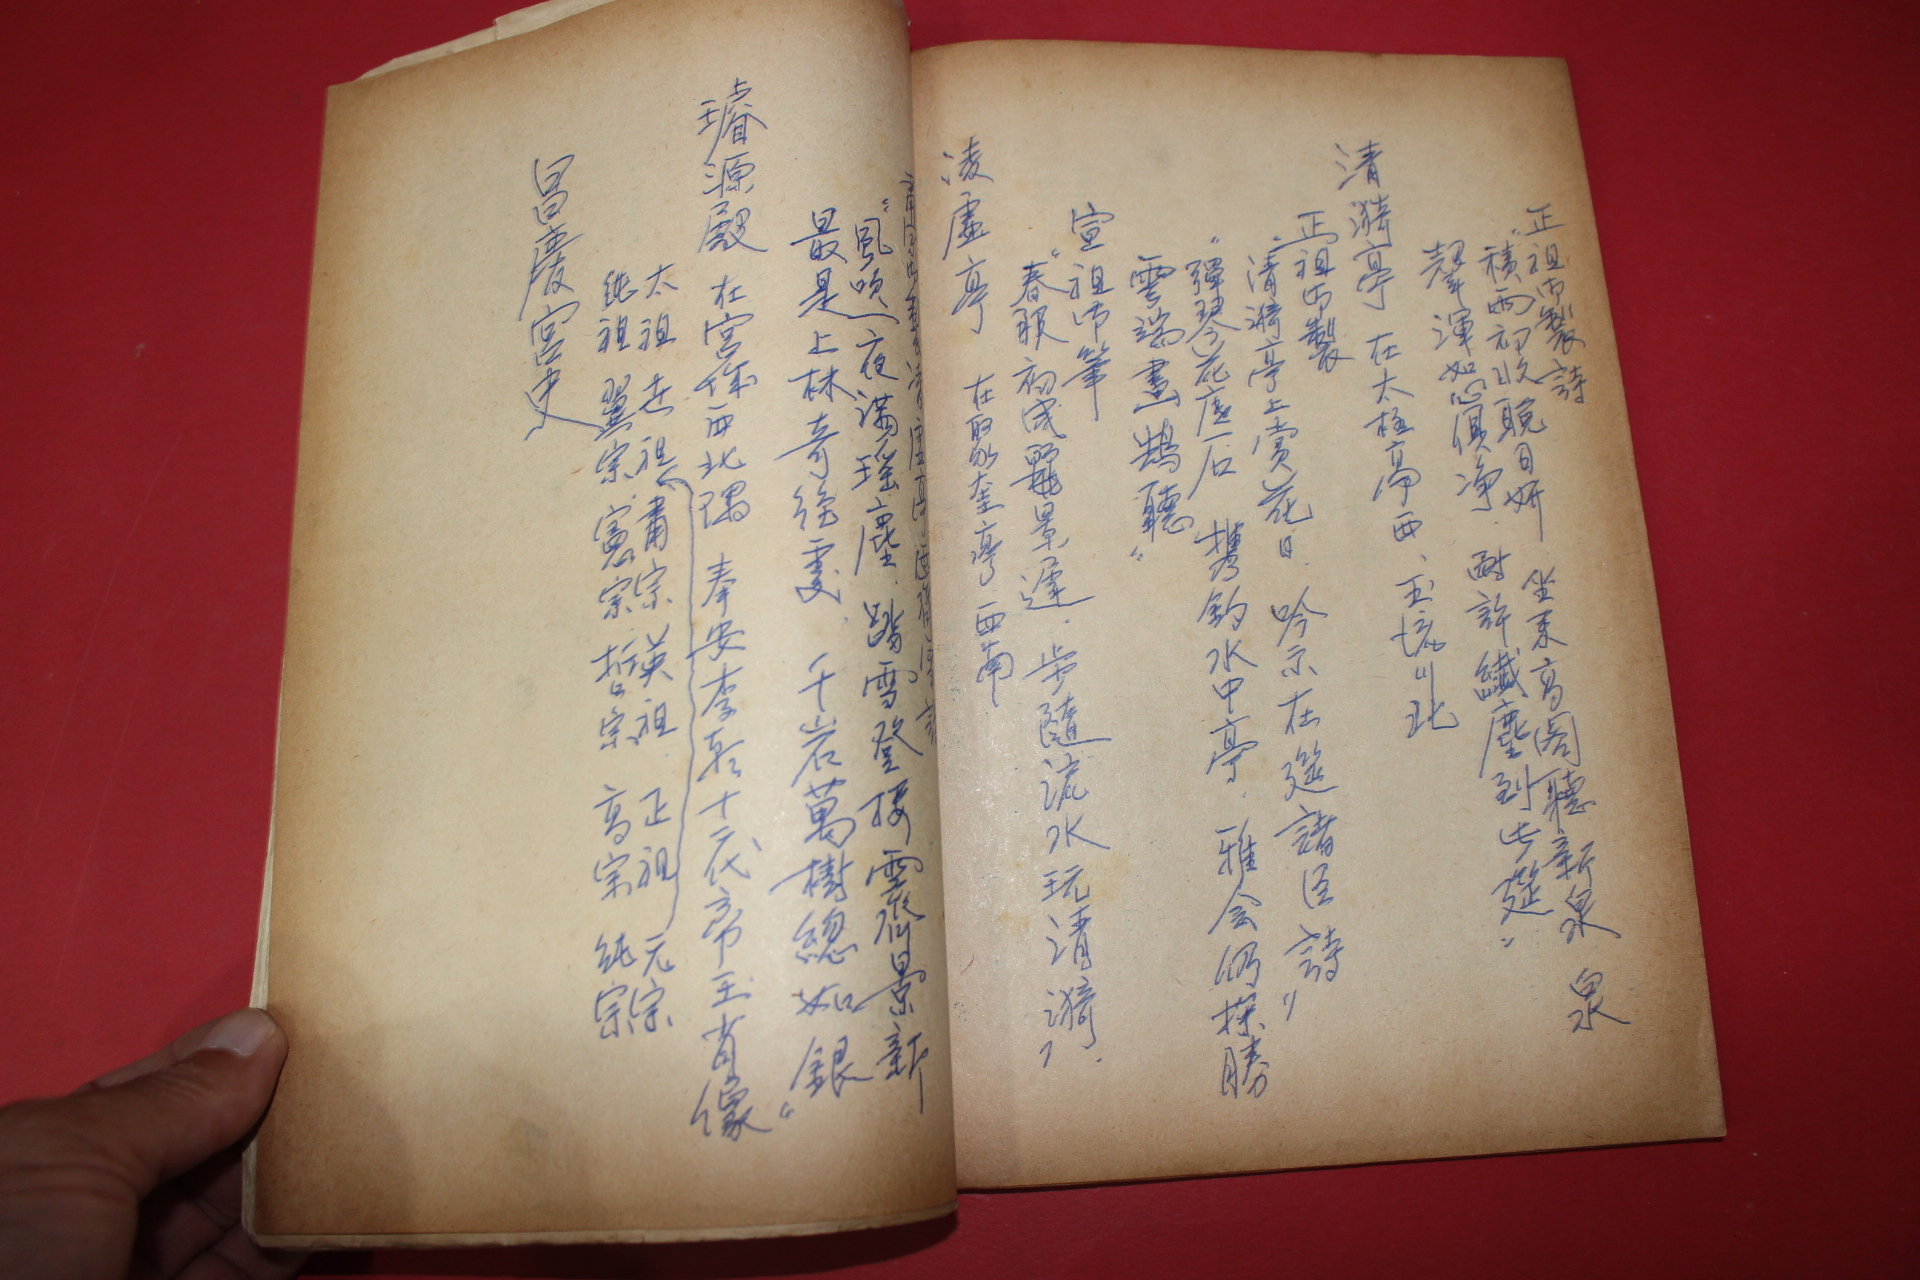 正祖御製詩
"積雨初收晩日姸 坐來高閣聽新泉 泉
聲渾如心俱净 耐許纖塵到此筵"
清漪亭 在太極亭西、玉流川北
正祖御製
"清漪亭上賞花日 吟示在筵諸臣詩"
"彈琴花底石 携釣水中亭 雅会仍探勝
雲端畵鵠聽"
宣祖御筆
"春服初成麗景遲 步隨流水玩清漪
凌虛亭 在聚奎亭西南
"風吹一夜滿瑤塵 踏雪登接霽景新
最是上林奇絶處 千岩萬樹總如銀"
璿源殿 在宮 西北隅 奉安李朝十二代帝王肖像
太祖 世祖 肅宗 英祖 正祖 元宗
純祖 翼宗 憲宗 哲宗 高宗 純宗
昌慶宮史